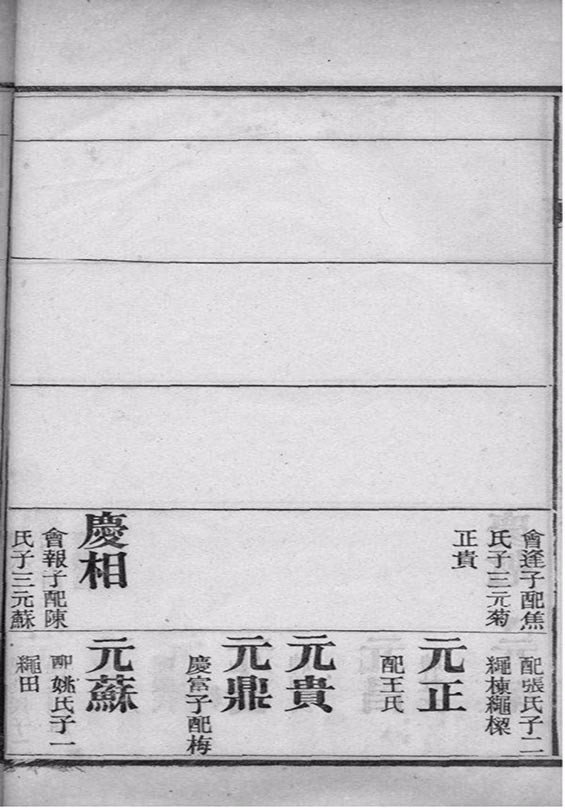 會逢子配焦
氏子三元菊
正貴
慶相
會報子配陳
氏子三元蘇
配張氏子二
繩棟繩樑
元正
配王氏
元貴
元鼎
慶富子配梅
元蘇
配姚氏子一
繩田